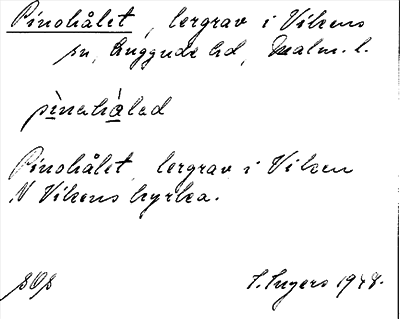 Pinohålet, lergrav i Vikens
sn, Luggude hd, Malm. l.
pinohålad
Pinohålet, lergrav i Viken
N Vikens kyrka.
SOS
S. Ingers 1948.